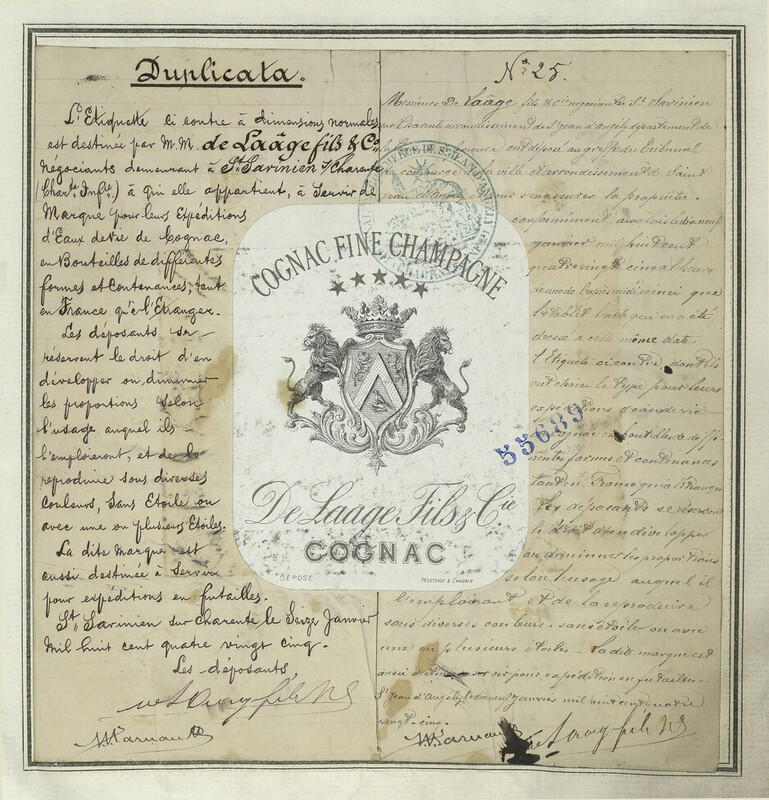 Duplicata.
L'Etiquette ci contre à dimensions normales
est destinée par M.M. de Laâge fils & Co.
Négociants demeurant à St Savinien s/ Charente
(Charte Infre.) à qui elle appartient, à Servir de
Marque pour leurs Expéditions
d'Eaux de Vie de Cognac,
en Bouteilles de différentes
formes et Contenances, tant
en France qu'à l'Etranger.
Les déposants se
réservent le droit d'en
développer ou diminuer
les proportions selon
l'usage auquel ils
l'emploieront, et de la
reproduire sous diverses
couleurs, sans Etoile ou
avec une ou plusieurs Etoiles.
La dite Marque est
aussi destinée à Servir
pour expéditions en futailles.
St Savinien sur Charente le Seize Janvier
Mil huit cent quatre vingt cinq.
Les déposants
No 25.
Messieurs De Laâge fils & Cie négociants St Savinien
arrondissement de St Jean d'angely département de
la ont déposé au greffe du Tribunal
de commerce de la ville et arrondissement de Saint
Jean d'angely pour s'en assurer la propriété.
conformément aux lois le dix neuf
janvier mil huit cent
quatre vingt cinq à l'heure
que
dressé à cette même date.
l'Etiquette ci contre, dont ils
ont choisi le type pour leurs
expéditions d'eau de vie
de Cognac en bouteilles de diffé-
rentes formes et contenances
tant en France qu'à l'étranger
Les déposants se réservent
le droit d'en développer
ou diminuer les proportions
selon l'usage auquel il
l'emploieront et de la reproduire
sous diverses couleurs, sans étoile ou avec
une ou plusieurs étoiles - La dite marque est
aussi destinée à servir pour expédition en futailles.
St Jean d'Angély le dix neuf janvier mil huit cent quatre
vingt-cinq.
COGNAC FINE CHAMPAGNE
De Laage Fils & Cie
COGNAC
DEPOSÉ
55689